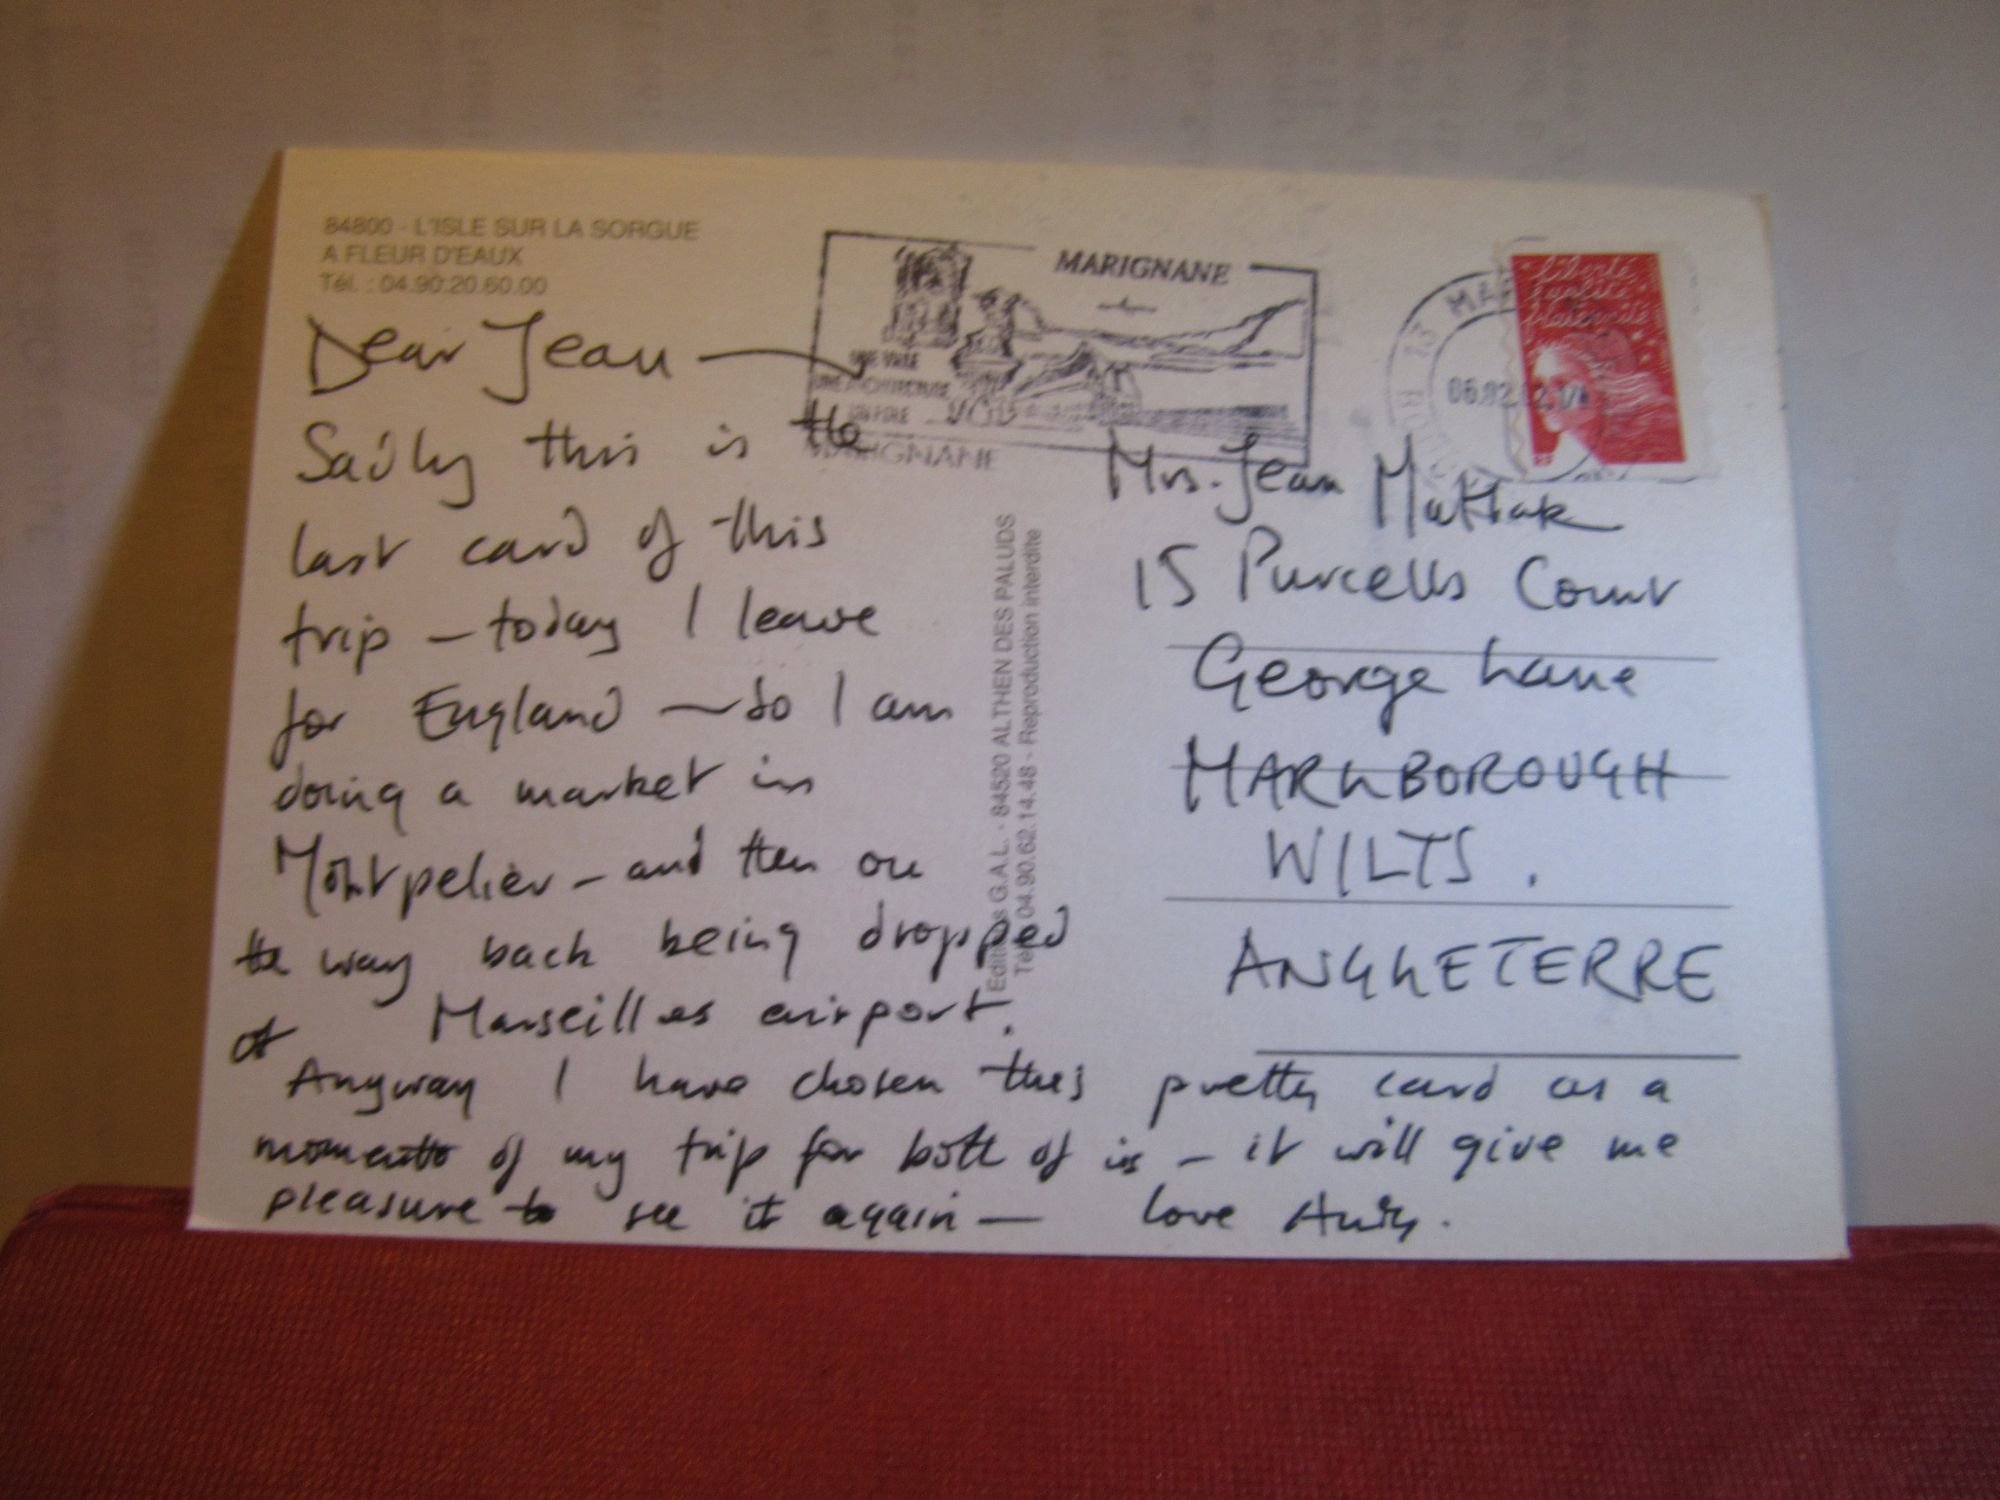 84800 - L'ISLE SUR LA SORGUE
A FLEUR D'EAUX
Tél. : 04.90.20.60.00
MARIGNANE
UNE VILLE
UNE ARCHITECTURE
MARIGNANE
13 MAR
06.02.02
liberté
égalité
fraternité
Dear Jean —
Sadly this is the
last card of this
trip – today I leave
for England – so I am
doing a market in
Montpelier – and then on
the way back being dropped
at Marseilles airport.
Anyway I have chosen this pretty card as a
momento of my trip for both of us – it will give me
pleasure to see it again — love
Editions G.A.L. - 84520 ALTHEN DES PALUDS
Tél. 04.90.62.14.48 - Reproduction interdite
Mrs. Jean
15 Purcells Court
George Lane
MARLBOROUGH
WILTS.
ANGLETERRE